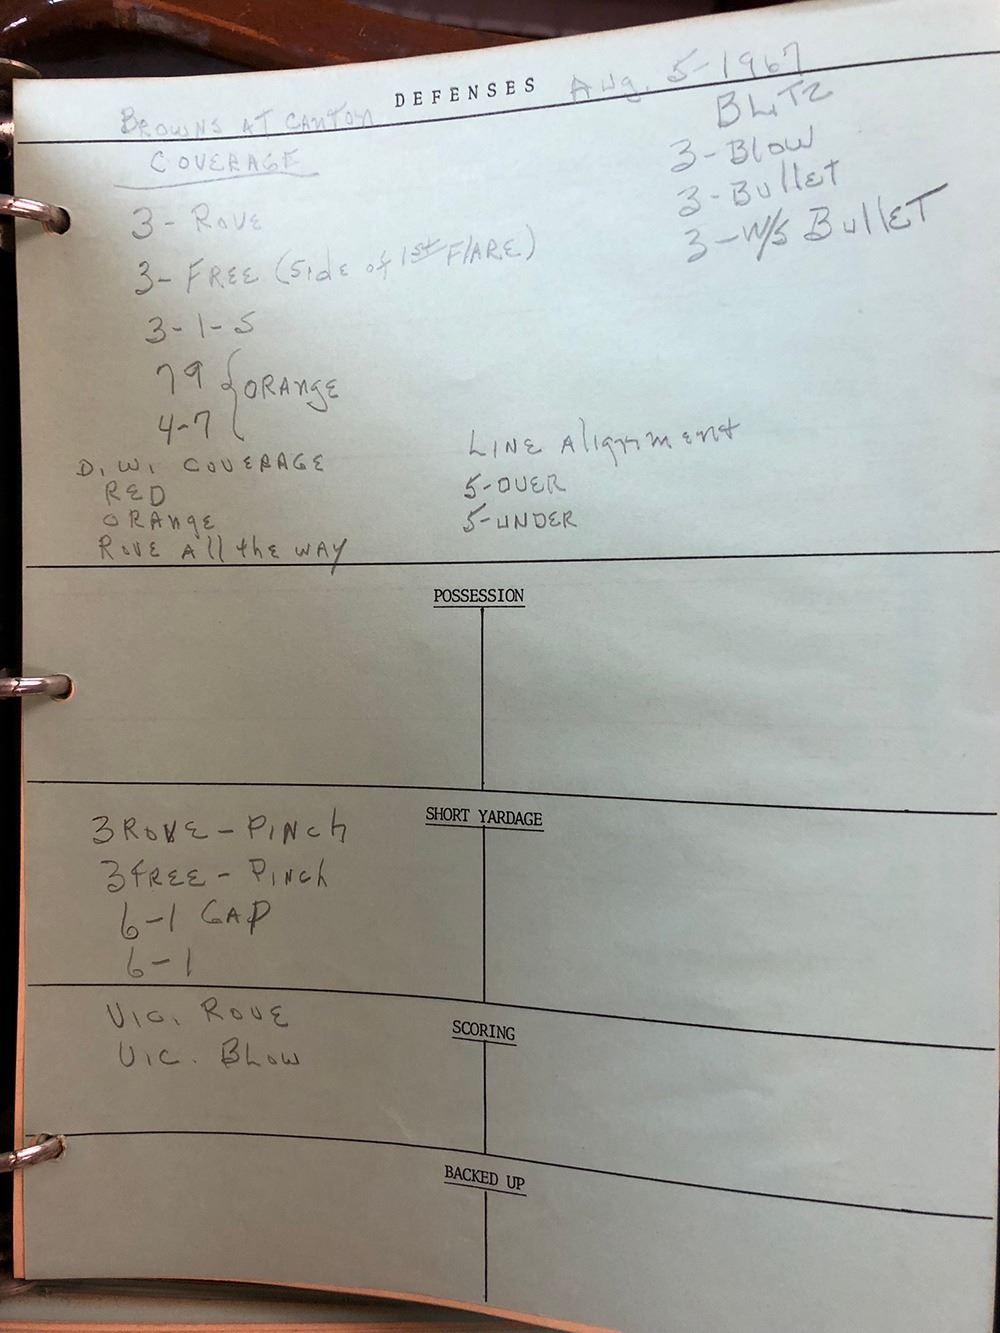 DEFENSES
BROWNS AT CANTON Aug. 5-1967
COVERAGE
3-ROVE
3-FREE (Side of 1st FlARE)
3-1-5
79
4-7 { ORANgE
BLITZ
3-Blow
3-BullET
3-W/S BullET
D.W. COVERAGE
RED
ORANgE
ROVE All the WAY
LINE Alignment
5-OVER
5-UNDER
POSSESSION
SHORT YARDAGE
3 ROVE - PINch
3 FREE - PINch
6-1 GAP
6-1
SCORING
VIC. ROVE
VIC. BLOW
BACKED UP